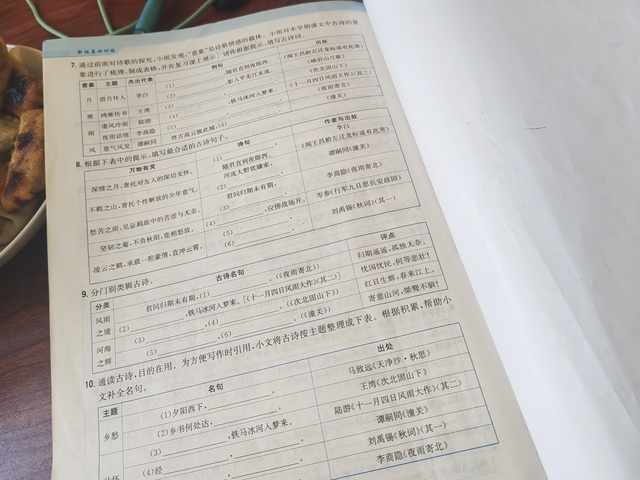 新编基础训练
7. 通过前面对诗歌的探究,小雨发现,“意象”是诗歌情感的载体。小雨对本学期课文中古诗的意
象进行了梳理,制成表格,并在复习课上展示。请你根据提示,填写古诗词。
意象 主题 杰出代表 例句 出处
月 借月怀人 李白 (1) ,随君直到夜郎西。 《闻王昌龄左迁龙标遥有此寄》
(2) ,影入平羌江水流。 《峨眉山月歌》
雁 鸿雁传书 王湾 (3) , 。 《次北固山下》
雨 陆游 (4) ,铁马冰河入梦来。 《十一月四日风雨大作》(其二)
夜雨话情 李商隐 (5) , 。 《夜雨寄北》
风 意气风发 谭嗣同 终古高云簇此城,(6) 。 《潼关》
8. 根据下表中的提示,填写最合适的古诗句子。
万物有灵 诗句 作者与出处
深情之月,寄托对友人的深切关怀。 (1) ,随君直到夜郎西。 李白《闻王昌龄左迁龙标遥有此寄》
不羁之山,寄托个性解放的少年意气。 河流大野犹嫌束,(2) 。 谭嗣同《潼关》
愁苦之雨,见证羁旅中的苦涩与无奈。 君问归期未有期,(3) 。 李商隐《夜雨寄北》
坚韧之菊,不负秋阳,竞相怒放。 (4) ,应傍战场开。 岑参《行军九日思长安故园》
凌云之鹤,承载一腔豪情,直冲云霄。 (5) , (6) 。 刘禹锡《秋词》(其一)
9. 分门别类辑古诗。
分类 古诗名句 评点
风雨之境 君问归期未有期,(1) 。(《夜雨寄北》) 归期遥遥,孤独无奈。
(2) ,铁马冰河入梦来。[《十一月四日风雨大作》(其二)] 忧国忧民,何等悲壮!
河海之辉 (3) ,(4) 。(《次北固山下》) 红日生辉,春来江上。
(5) ,(6) 。(《潼关》) 寄意山河,桀骜不驯!
10. 通读古诗,目的在用。为方便写作时引用,小文将古诗按主题整理成下表。根据积累,帮助小
文补全名句。
主题 名句 出处
乡愁 (1)夕阳西下, 。 马致远《天净沙·秋思》
(2)乡书何处达, 。 王湾《次北固山下》
(3) ,铁马冰河入梦来。 陆游《十一月四日风雨大作》(其二)
(4) , 。 谭嗣同《潼关》
刘禹锡《秋词》(其一)
李商隐《夜雨寄北》